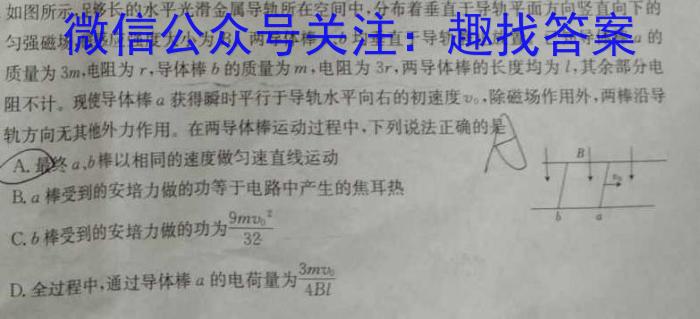 如图所示,足够长的水平光滑金属导轨所在空间中,分布着垂直于导轨平面方向竖直向下的
匀强磁场
微信公众号关注:趣找答案
a的
质量为3m,电阻为r,导体棒b的质量为m,电阻为3r,两导体棒的长度均为l,其余部分电
阻不计。现使导体棒a获得瞬时平行于导轨水平向右的初速度v₀,除磁场作用外,两棒沿导
轨方向无其他外力作用。在两导体棒运动过程中,下列说法正确的是
A
A.最终a、b棒以相同的速度做匀速直线运动
B.a棒受到的安培力做的功等于电路中产生的焦耳热
C.b棒受到的安培力做的功为9mv₀²/32
D.全过程中,通过导体棒a的电荷量为3mv₀/4Bl
B
v₀
b
a